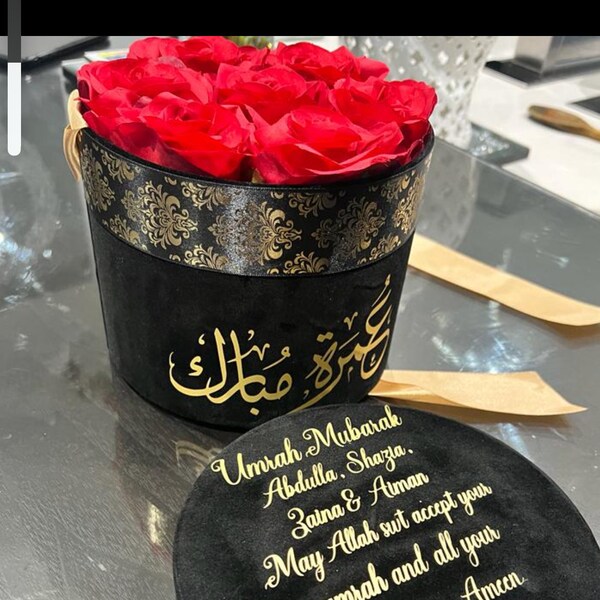 عُمرَة مُبارك
Umrah Mubarak
Abdulla, Shazia,
Zaina & Aiman
May Allah swt accept your
umrah and all your
Ameen.